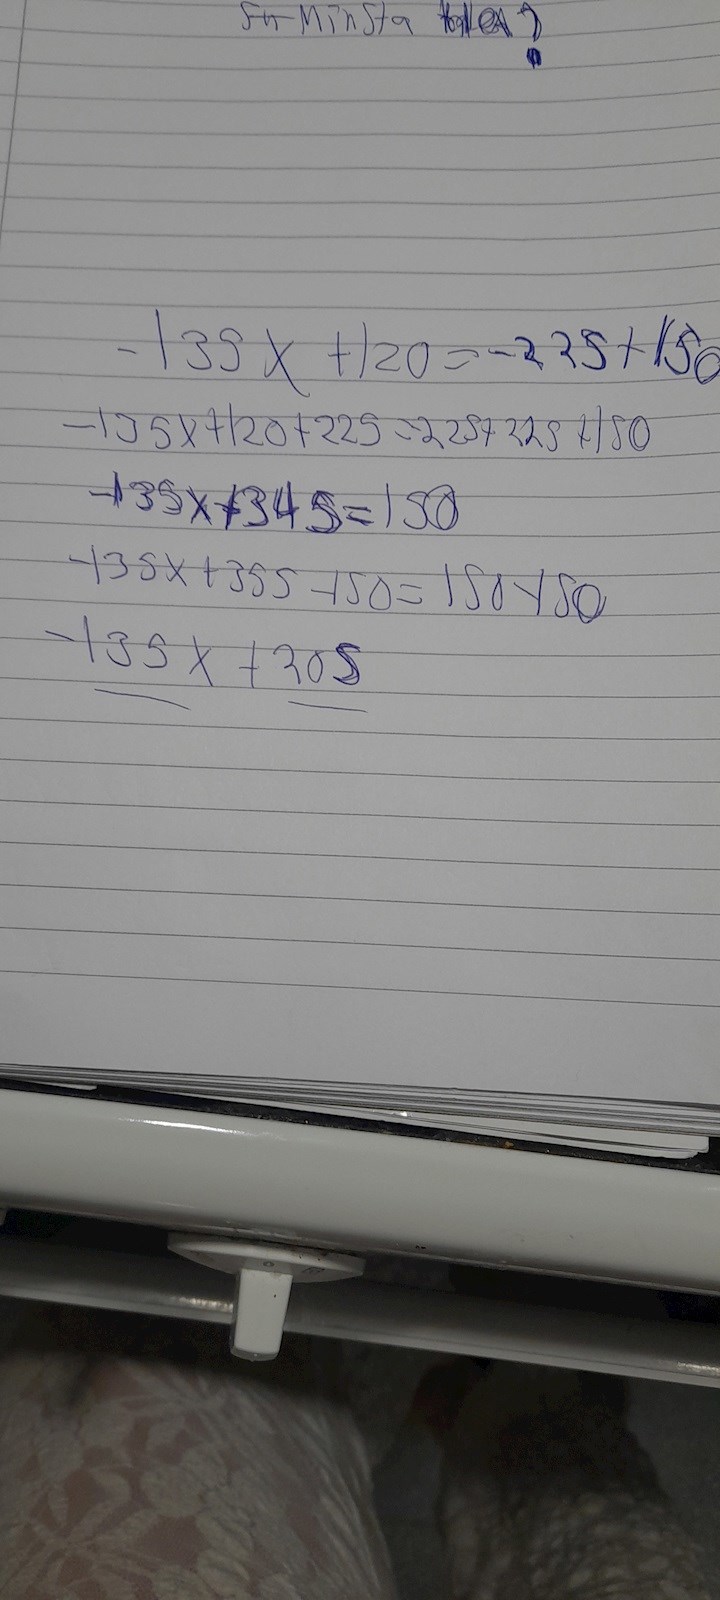 Minsta
-135x+120=-225+150
-135x+120+225=-225+225+150
-135x+345=150
-135x+355-150=150-150
-135x+205